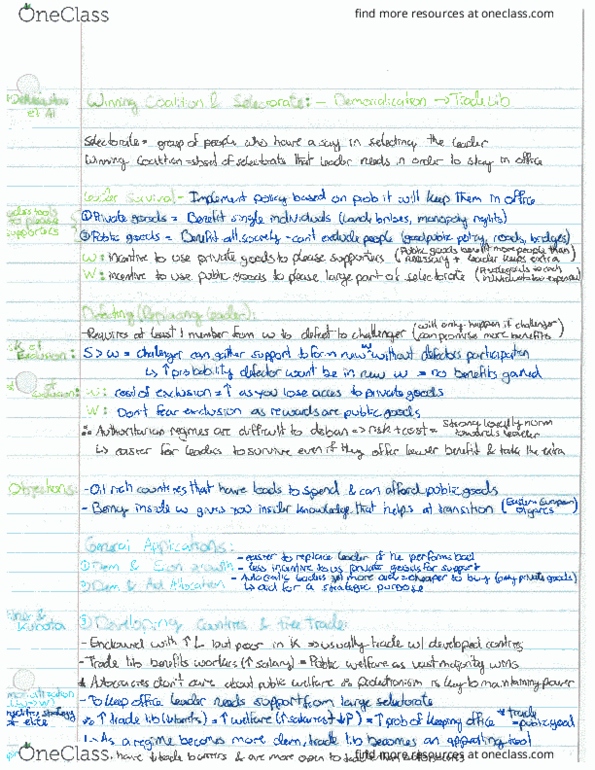 OneClass
find more resources at oneclass.com
et Al
Winning Coalition & Selectorate: - Democratication → Trade Lib
Selectorate = group of people who have a say in selecting the leader
Winning Coalition = subset of selectorate that leader needs in order to stay in office
Leader Survival - Implement policy based on prob it will keep them in office
① Private goods = Benefit single individuals (land, bribes, monopoly rights)
② Public goods = Benefit all society - can't exclude people (good public policy, roads, bridges)
w: incentive to use private goods to please supporters (Public goods benefit more people than necessary + leader keeps extra)
W: incentive to use public goods to please large part of selectorate (Private goods to each individual too expensive)
Defecting (Replacing leader):
- Requires at least 1 member from w to defect to challenger (will only happen if challenger can promise more benefits)
Exclusion: S > w = challenger can gather support to form new w without defectors participation
↳ ↑ probability defector wont be in new w = no benefits gained
w: cost of exclusion = ↑ as you lose acces to private goods
W: Don't fear exclusion as rewards are public goods
∴ Authoritarian regimes are difficult to => risk + cost = strong loyalty norm towards leader
↳ easier for leaders to survive even if they offer lower benefit & take the extra
Objections: - Oil rich countries that have loads to spend & can afford public goods
- Being inside w gives you insider knowledge that helps at transition (Eastern European)
General Applications:
① Dem & Econ growth - easier to replace leader if he performs bad
- less incentive to us private goods for support
② Dem & Aid Allocation - Autocratic leaders more aid = cheaper to buy (only private goods)
↳ aid for a strategic purpose
& Kubota
③ Developing Countries & free trade:
- Endowed with ↑ L but poor in K => usually trade w/ developed contries
- Trade lib benefits workers (↑ salary) = Public welfare as vast majority wins
* Autocracies don't care about public welfare & Protectionism is key to maintaining power
- To keep office leader needs support from large selectorate
elite
∴ ↑ trade lib (wants) ↑ welfare (↑ salaries + ↓P) = ↑ prob of keeping office * trade = public good
↳ As a regime becomes more dem, trade lib becomes an appealing tool
have ↓ trade barriers & are more open to trade than autocracies
OneClass
find more resources at oneclass.com